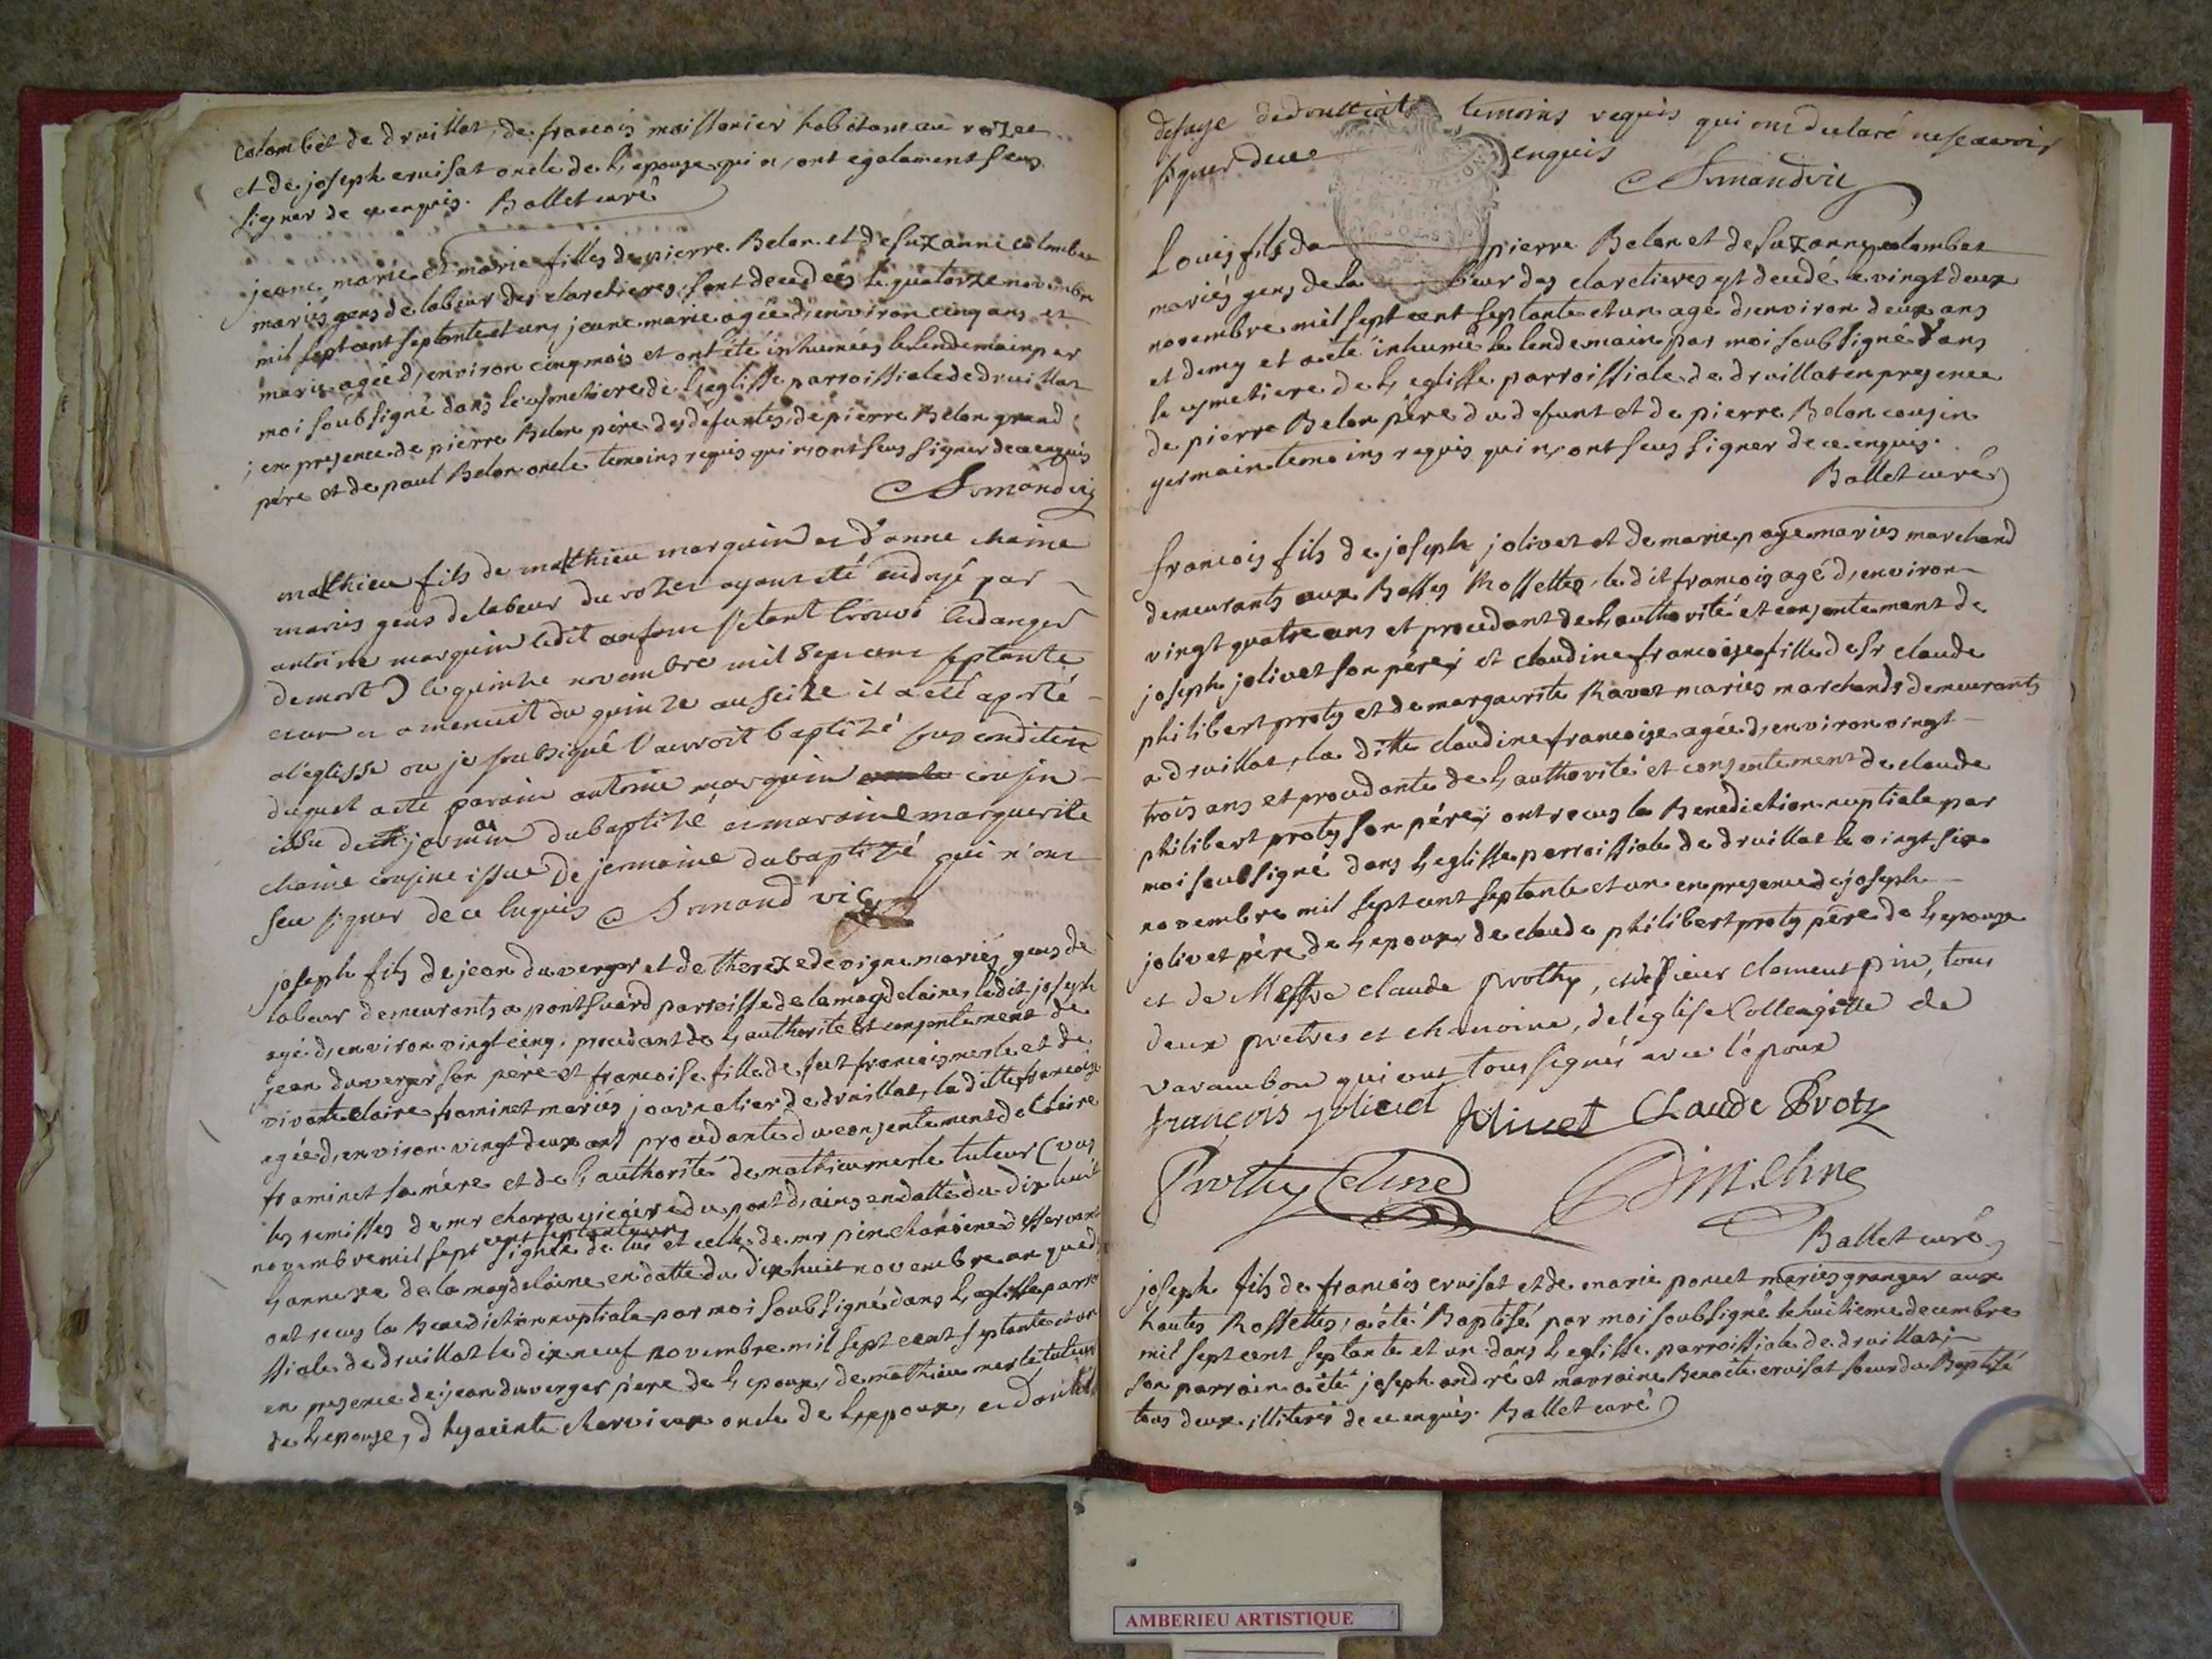 colombet de druillat, de francois moissonier habitant au rozet
et de joseph cruisat oncle de l,epouse qui n,ont egalement sceus
signer de ce enquis. Ballet curé
jeane marie et marie filles de pierre Belon et de suzanne colombet
mariés gens de labeur des claretieres, sont decedées le quatorze novembre
mil sept cent septante et un, jeane marie agée d,environ cinq ans et
marie agée d,environ cinq mois et ont été inhumées le lendemain par
moi soubsigné dans le cymetiere de l,eglisse parroissiale de druillat
; en presence de pierre Belon père des defuntes, de pierre Belon grand
père et de paul Belon oncle temoins requis qui n,ont sceus signer de ce enquis
Armand vic
mathieu fils de mathieu marguin et d'anne chaine
mariés gens de labeur du rozet ayant eté ondoyé par
antoine marguin ledit enfant s'etant trouvé en danger
de mort le quinze novembre mil sept cent septante
et un et a menuit du quinze au seize il a eté aporté
a l'eglisse ou je soubsigné l'aurrois baptizé sous condition
duquel a eté parain antoine marguin cousin
issu de germain du baptizé et maraine marguerite
chaine cousine issue de jermaine du baptizé qui n'ont
sceu signer de ce enquis Armand vic
joseph fils de jean duverger et de thereze devigne mariés gens de
labeur demeurants a pont suërd parroisse de la magdelaine, ledit joseph
agé d,environ vingt cinq, procedant de l,authorité et consentement de
jean duverger son père et francoise fille de feu francois merle et de
vivante claire framinet mariés journalier de druillat, la ditte francoise
agée d,environ vingt deux ans procedante du consentement de claire
framinet sa mère et de l,authorité de mathieu merle tuteur (vus
les remisses de mr charra vicaire du pont d,ains en datte du dix huit
novembre mil sept cent septante un signée de lui et celle de mr pin chanoine desservant
l,annexe de la magdelaine en datte du dix huit novembre an que dessus
ont recus la Benediction nuptiale par moi soubsigné dans l,eglisse parroi
ssiale de druillat le dix neuf novembre mil sept cent septante et un
en presence de jean duverger père de l,epoux, de mathieu merle tuteur
de l,epouse, d hyacinte chervieux oncle de l,epoux, et d'
temoins requis qui ont declaré ne scavoir
signer de ce enquis
Armand vic
Louis fils de pierre Belon et de suzanne colombet
mariés gens de labeur des claretieres est decedé le vingt deux
novembre mil sept cent septante et un agé d,environ deux ans
et demy et a eté inhumé le lendemain par moi soubsigné dans
le cymetiere de l,eglisse parroissiale de druillat en presence
de pierre Belon père du defunt et de pierre Belon cousin
germain temoins requis qui n,ont sceus signer de ce enquis.
Ballet curé
francois fils de joseph jolivet et de marie page mariés marchand
demeurants aux Basses Rossettes, le dit francois agé d,environ
vingt quatre ans et procedant de l,authorité et consentement de
joseph jolivet son père; et claudine francoise fille de sr claude
philibert proty et de marguerite Ravet mariés marchands demeurants
a druillat, la ditte claudine francoise agée d,environ vingt
trois ans et procedante de l,authorité et consentement de claude
philibert proty son père; ont recus la Benediction nuptiale par
moi soubsigné dans l,eglisse parroissiale de druillat le vingt six
novembre mil sept cent septante et un en presence de joseph
jolivet père de l,epoux, de claude philibert proty père de l,epouse
et de Messre claude prothy, et de sieur clement pin, tous
deux pretres et chanoine, de l'eglise Collegialle de
varambon qui ont tous signés avec l'epoux
françois jolivet Jolivet Claude Proty
Prothy chne Pin chne
Ballet curé
joseph fils de francois cruisat et de marie poncet mariés granger aux
hautes Rossettes, a été Baptisé par moi soubsigné le huitieme decembre
mil sept cent septante et un dans l,eglisse parroissiale de druillat;
son parrain a été joseph andré et marraine Benoite cruisat soeur du Baptisé
tous deux illiterés de ce enquis. Ballet curé
AMBERIEU ARTISTIQUE